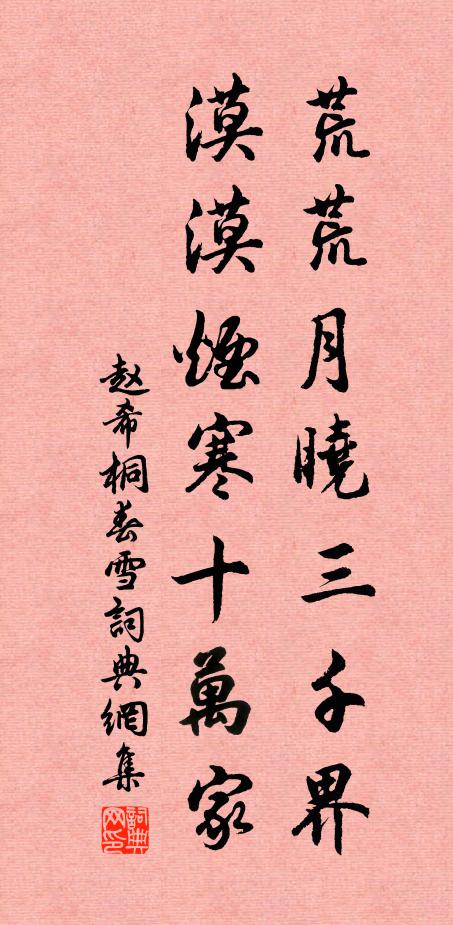 荒荒月曉三千界
漠漠煙寒十萬家
赵希桐春雪詞典網集
詞典网印